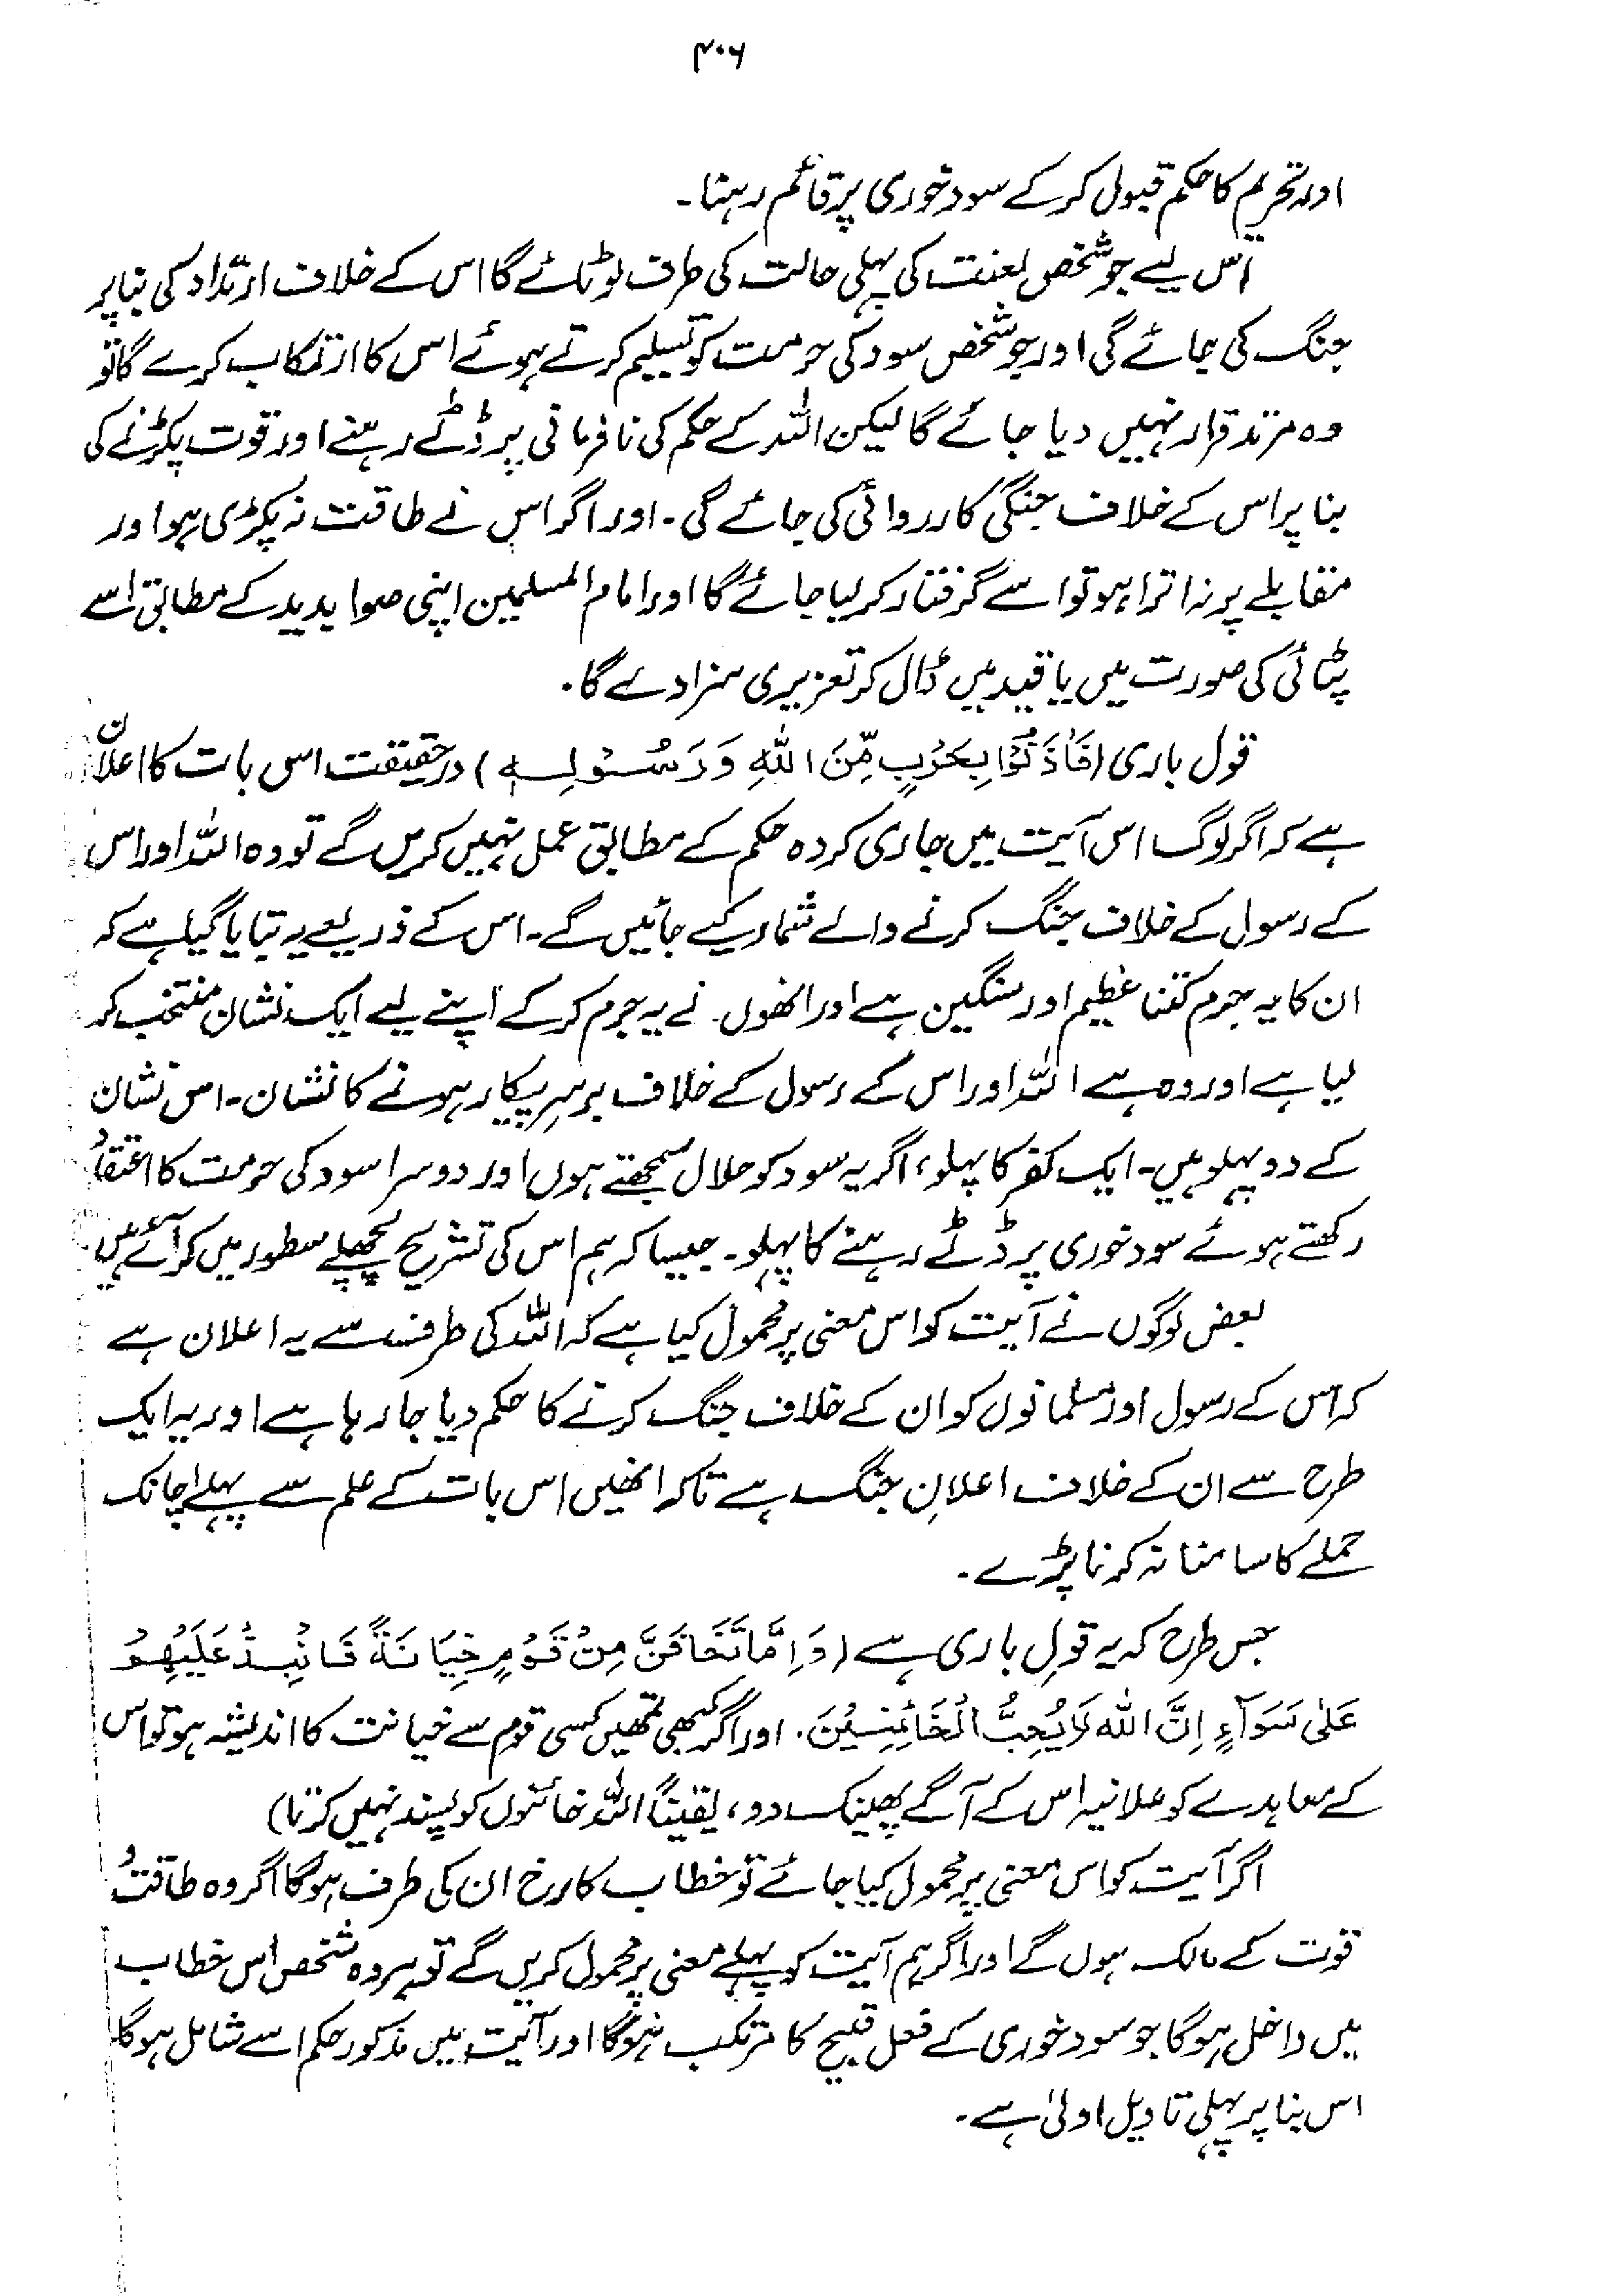 ۴۰۶
اور تحریم کا حکم قبول کر کے سود خوری پر قائم رہنا۔
اس لیے جو شخص لعنت کی پہلی حالت کی طرف لوٹ جائے گا اس کے خلاف ارتداد کی بنا پر
جنگ کی جائے گی اور جو شخص سود کی حرمت کو تسلیم کرتے ہوئے اس کا ارتکاب کرے گا تو
وہ مرتد قرار نہیں دیا جائے گا لیکن اللہ کے حکم کی نافرمانی پر ڈٹے رہنے اور قوت پکڑنے کی
بنا پر اس کے خلاف جنگی کارروائی کی جائے گی۔ اور اگر اس نے طاقت نہ پکڑی ہو اور
مقابلے پر نہ اترا ہو تو اسے گرفتار کر لیا جائے گا اور امام المسلمین اپنی صوابدید کے مطابق اسے
پٹائی کی صورت میں یا قید میں ڈال کر تعزیری سزا دے گا۔
قول باری (فَأْذَنُوْا بِحَرْبٍ مِّنَ اللهِ وَرَسُوْلِهٖ) درحقیقت اس بات کا اعلان
ہے کہ اگر لوگ اس آیت میں جاری کردہ حکم کے مطابق عمل نہیں کریں گے تو وہ اللہ اور اس
کے رسول کے خلاف جنگ کرنے والے شمار کیے جائیں گے۔ اس کے ذریعے یہ بتایا گیا ہے کہ
ان کا یہ جرم کتنا عظیم اور سنگین ہے اور انھوں نے یہ جرم کر کے اپنے لیے ایک نشان منتخب کر
لیا ہے اور وہ ہے اللہ اور اس کے رسول کے خلاف برسرِ پیکار ہونے کا نشان۔ اس نشان
کے دو پہلو ہیں۔ ایک کفر کا پہلو، اگر یہ سود کو حلال سمجھتے ہوں اور دوسرا سود کی حرمت کا اعتقاد
رکھتے ہوئے سود خوری پر ڈٹے رہنے کا پہلو۔ جیسا کہ ہم اس کی تشریح پچھلے سطور میں کر آئے ہیں
بعض لوگوں نے آیت کو اس معنی پر محمول کیا ہے کہ اللہ کی طرف سے یہ اعلان ہے
کہ اس کے رسول اور مسلمانوں کو ان کے خلاف جنگ کرنے کا حکم دیا جا رہا ہے اور یہ ایک
طرح سے ان کے خلاف اعلانِ جنگ ہے تاکہ انھیں اس بات کے علم سے پہلے اچانک
حملے کا سامنا نہ کرنا پڑے۔
جس طرح کہ یہ قولِ باری ہے (وَاِمَّا تَخَافَنَّ مِنْ قَوْمٍ خِيَانَةً فَانْبِذْ عَلَيْهِمْ
عَلىٰ سَوَآءٍ اِنَّ اللهَ لَا يُحِبُّ الْخَائِنِيْنَ۔ اور اگر کبھی تمھیں کسی قوم سے خیانت کا اندیشہ ہو تو اس
کے معاہدے کو علانیہ اس کے آگے پھینک دو، یقیناً اللہ خائنوں کو پسند نہیں کرتا)
اگر آیت کو اس معنی پر محمول کیا جائے تو خطاب کا رخ ان کی طرف ہوگا اگر وہ طاقت و
قوت کے مالک ہوں گے اور اگر ہم آیت کو پہلے معنی پر محمول کریں گے تو ہر وہ شخص اس خطاب
میں داخل ہوگا جو سود خوری کے فعل قبیح کا مرتکب ہوگا اور آیت میں مذکور حکم اسے شامل ہوگا
اس بنا پر پہلی تاویل اولیٰ ہے۔